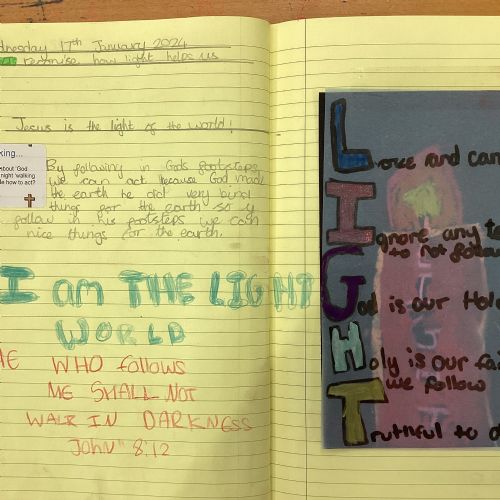 dnesday 17th January 2024
recognise how light helps us
Jesus is the light of the world!
king...
about 'God
night 'walking
de how to act?
By following in Gods footsteps
we can act because God made
the earth he did very kind
things for the earth so if
follow in his footsteps we can
nice things for the earth.
I am THE LIGHT
WORLD
HE WHO follows
ME SHALL NOT
WALK IN DARKNESS
John" 8:12
LIGHT
Love and car
Ignore any te
to not follow
God is our Hol
Holy is our fa
we follow
Truthful to o